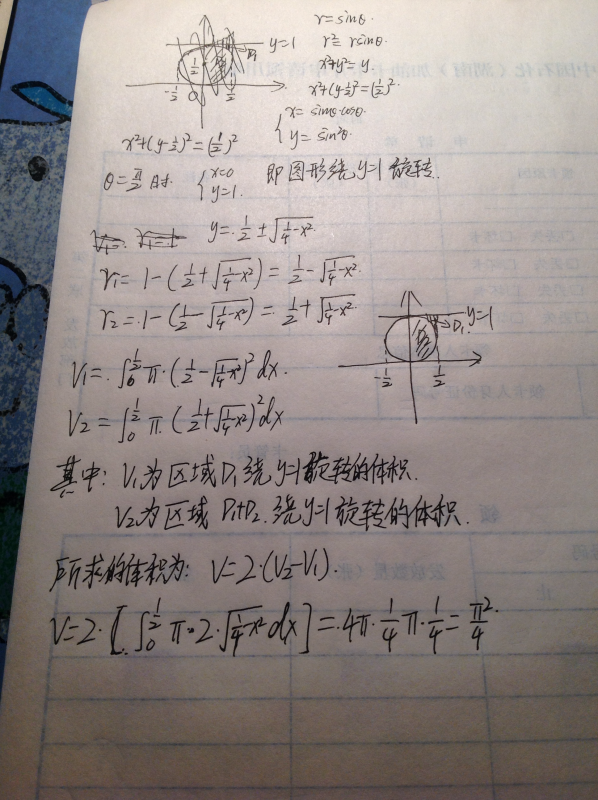 r=sinθ.
y=1
r²=rsinθ.
x²+y²=y.
x²+(y-½)²=(½)².
x²+(y-½)²=(½)²
{x=sinθ·cosθ
y=sin²θ.
θ=π/2时. {x=0
y=1.
即图形绕y=1旋转.
y=½±√(¼-x²)
r₁=1-(½+√(¼-x²))=½-√(¼-x²).
r₂=1-(½-√(¼-x²))=½+√(¼-x²).
y=1
D₁
-½ ½
V₁=∫₀^½ π·(½-√(¼-x²))²dx.
V₂=∫₀^½ π(½+√(¼-x²))²dx
其中: V₁为区域D₁绕y=1旋转的体积.
V₂为区域D₁+D₂绕y=1旋转的体积.
所求的体积为: V=2·(V₂-V₁).
V=2·[∫₀^½ π·2·√(¼-x²)dx]=4π·¼π·¼=π²/4.